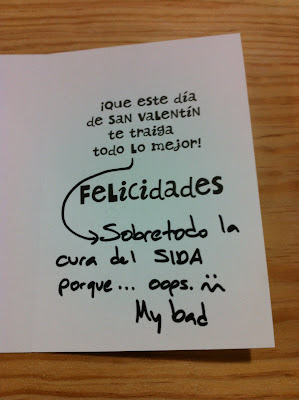 ¡Que este día
de SAN VALENTÍN
te traiga
todo lo mejor!
FELICIDADES
Sobretodo la
cura del SIDA
porque... oops. :(
My bad